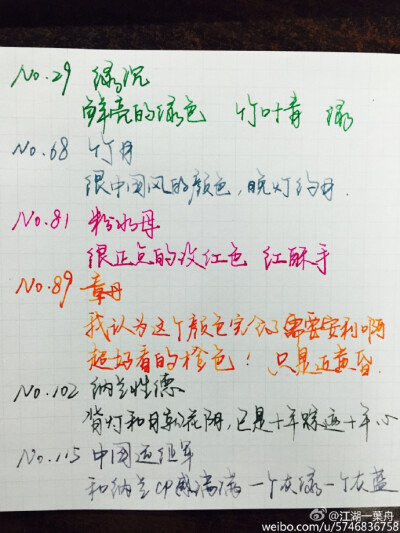 No.29 绿沉
鲜亮的绿色 竹叶青 绿
No.68 竹月
很中国风的颜色，晚灯约月.
No.81 粉水母
很正点的玫红色 红酥手
No.89 章丹
我认为这个颜色完全需要安利啊
超好看的橙色！ 只是近黄昏.
No.102 纳兰性德
背灯和月就花阴，已是十年踪迹十年心
No.115 中国远征军
和纳兰CP感满满 一个灰绿一个灰蓝
@江湖一葉舟
weibo.com/u/5746836758